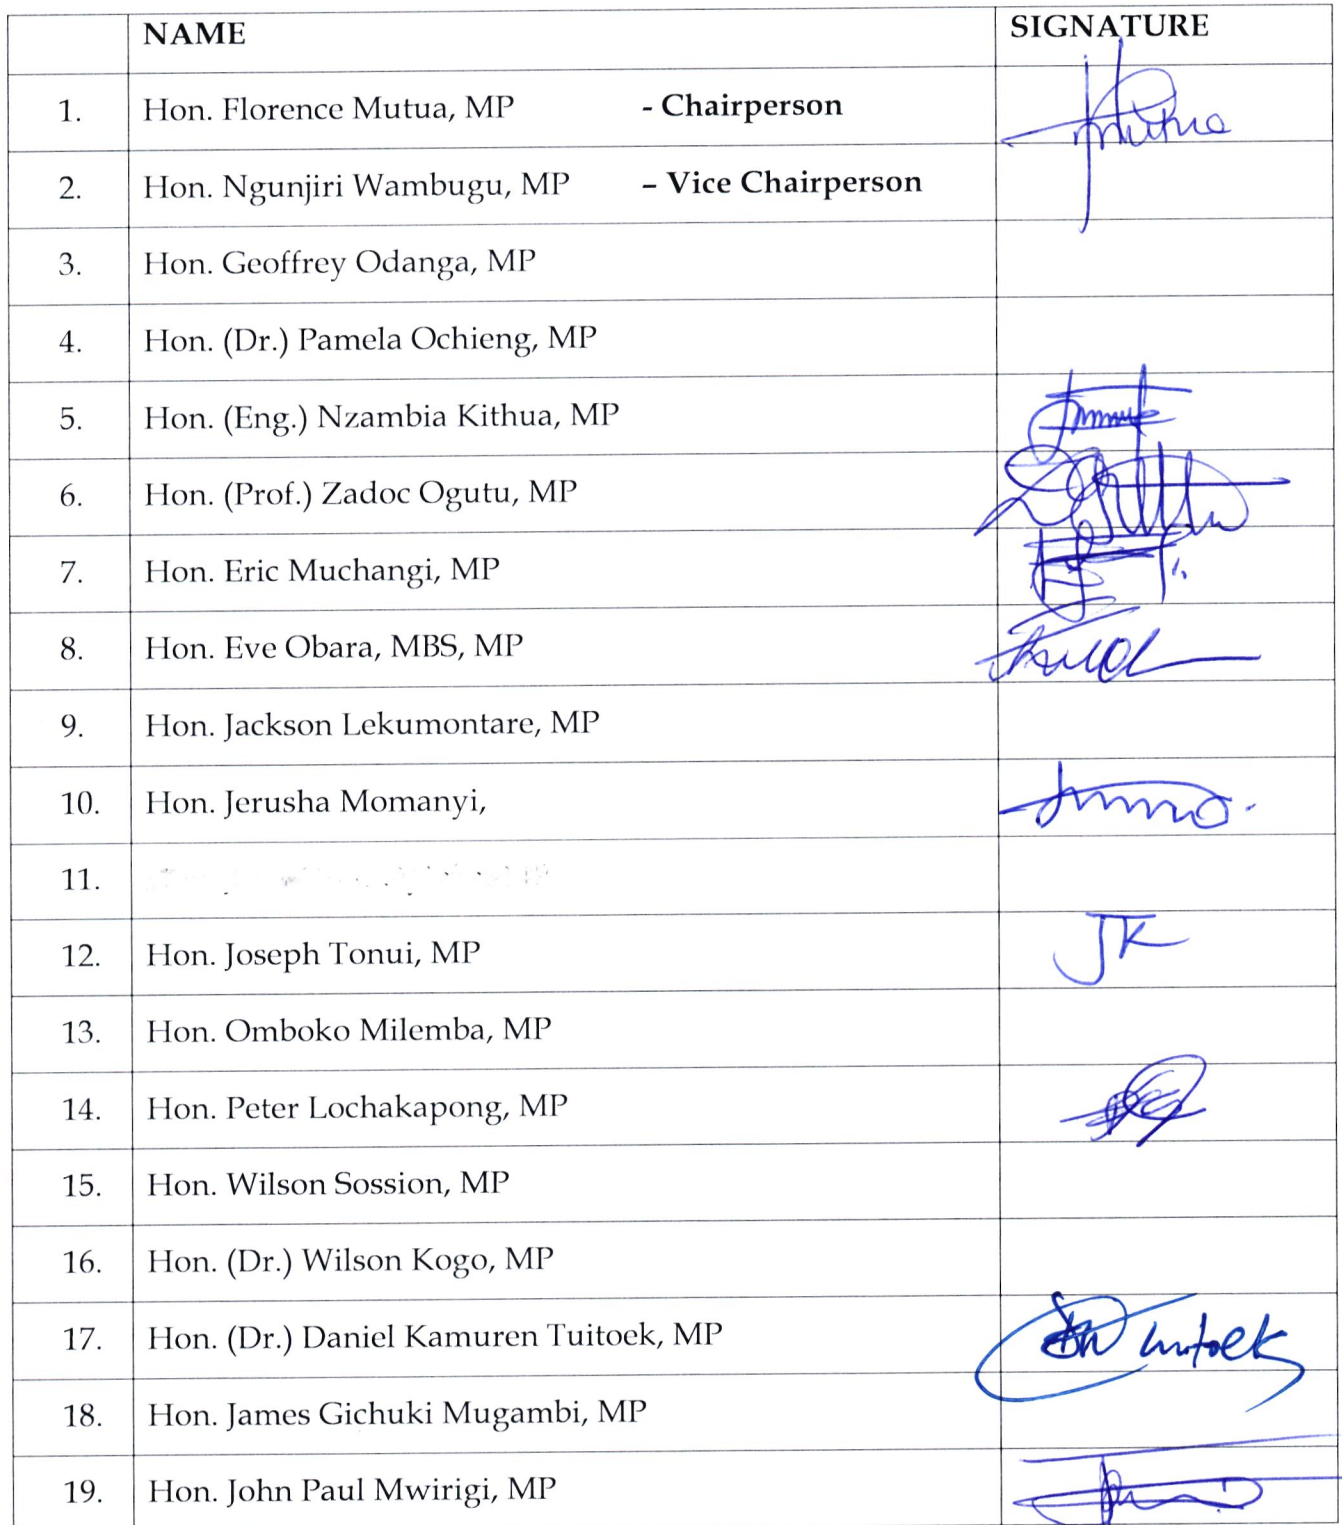 NAME SIGNATURE
1. Hon. Florence Mutua, MP - Chairperson
2. Hon. Ngunjiri Wambugu, MP – Vice Chairperson
3. Hon. Geoffrey Odanga, MP
4. Hon. (Dr.) Pamela Ochieng, MP
5. Hon. (Eng.) Nzambia Kithua, MP
6. Hon. (Prof.) Zadoc Ogutu, MP
7. Hon. Eric Muchangi, MP
8. Hon. Eve Obara, MBS, MP
9. Hon. Jackson Lekumontare, MP
10. Hon. Jerusha Momanyi,
11.
12. Hon. Joseph Tonui, MP JK
13. Hon. Omboko Milemba, MP
14. Hon. Peter Lochakapong, MP
15. Hon. Wilson Sossion, MP
16. Hon. (Dr.) Wilson Kogo, MP
17. Hon. (Dr.) Daniel Kamuren Tuitoek, MP
18. Hon. James Gichuki Mugambi, MP
19. Hon. John Paul Mwirigi, MP